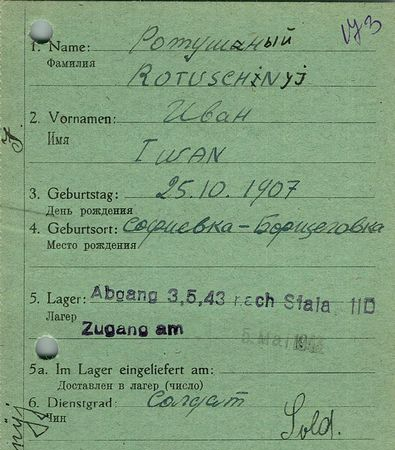 1. Name: Ротушаный
Фамилия ROTUSCHINYJ
2. Vornamen: Иван
Имя
IWAN
3. Geburtstag: 25.10.1907
День рождения
4. Geburtsort: Софиевка-Борщеговка
Место рождения
5. Lager: Abgang 3,5,43 nach Stala IID
Лагер
Zugang am 5. Mai
5a. Im Lager eingeliefert am:
Доставлен в лагер (число)
6. Dienstgrad: Солдат
Чин
Sold.